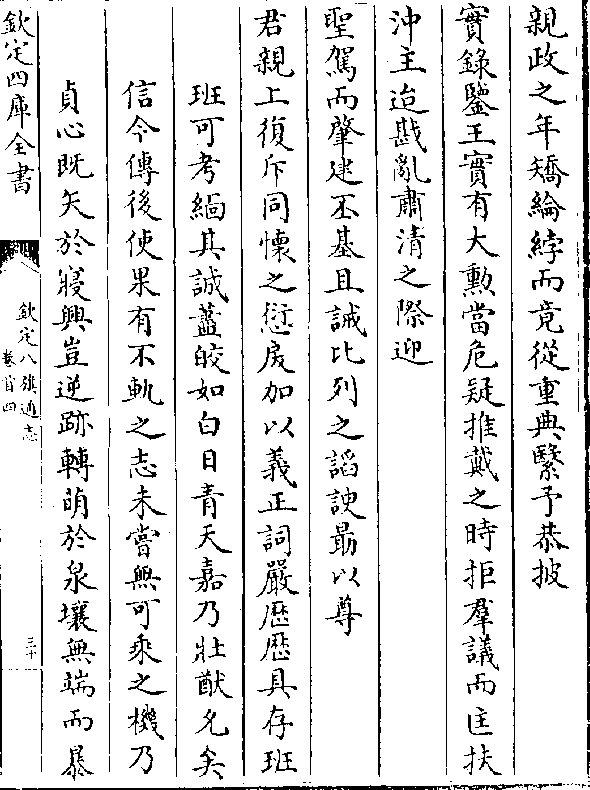 親政之年矯綸綍而竟從重典繄予恭披
實錄鑒王實有大勲當危疑推戴之時拒羣議而匡扶
沖主迨戡亂肅清之際迎
聖駕而肇建丕基且誡比列之謟諛勗以尊
君親上復斥同懷之愆戾加以義正詞嚴厯厯具存班
班可考緬其誠藎皎如白日青天嘉乃壯猷允矣
信今傳後使果有不軌之志未嘗無可乘之機乃
貞心既矢於寢興豈逆跡轉萌於泉壤無端而暴
欽定四庫全書
欽定八旗通志
卷首四
三十